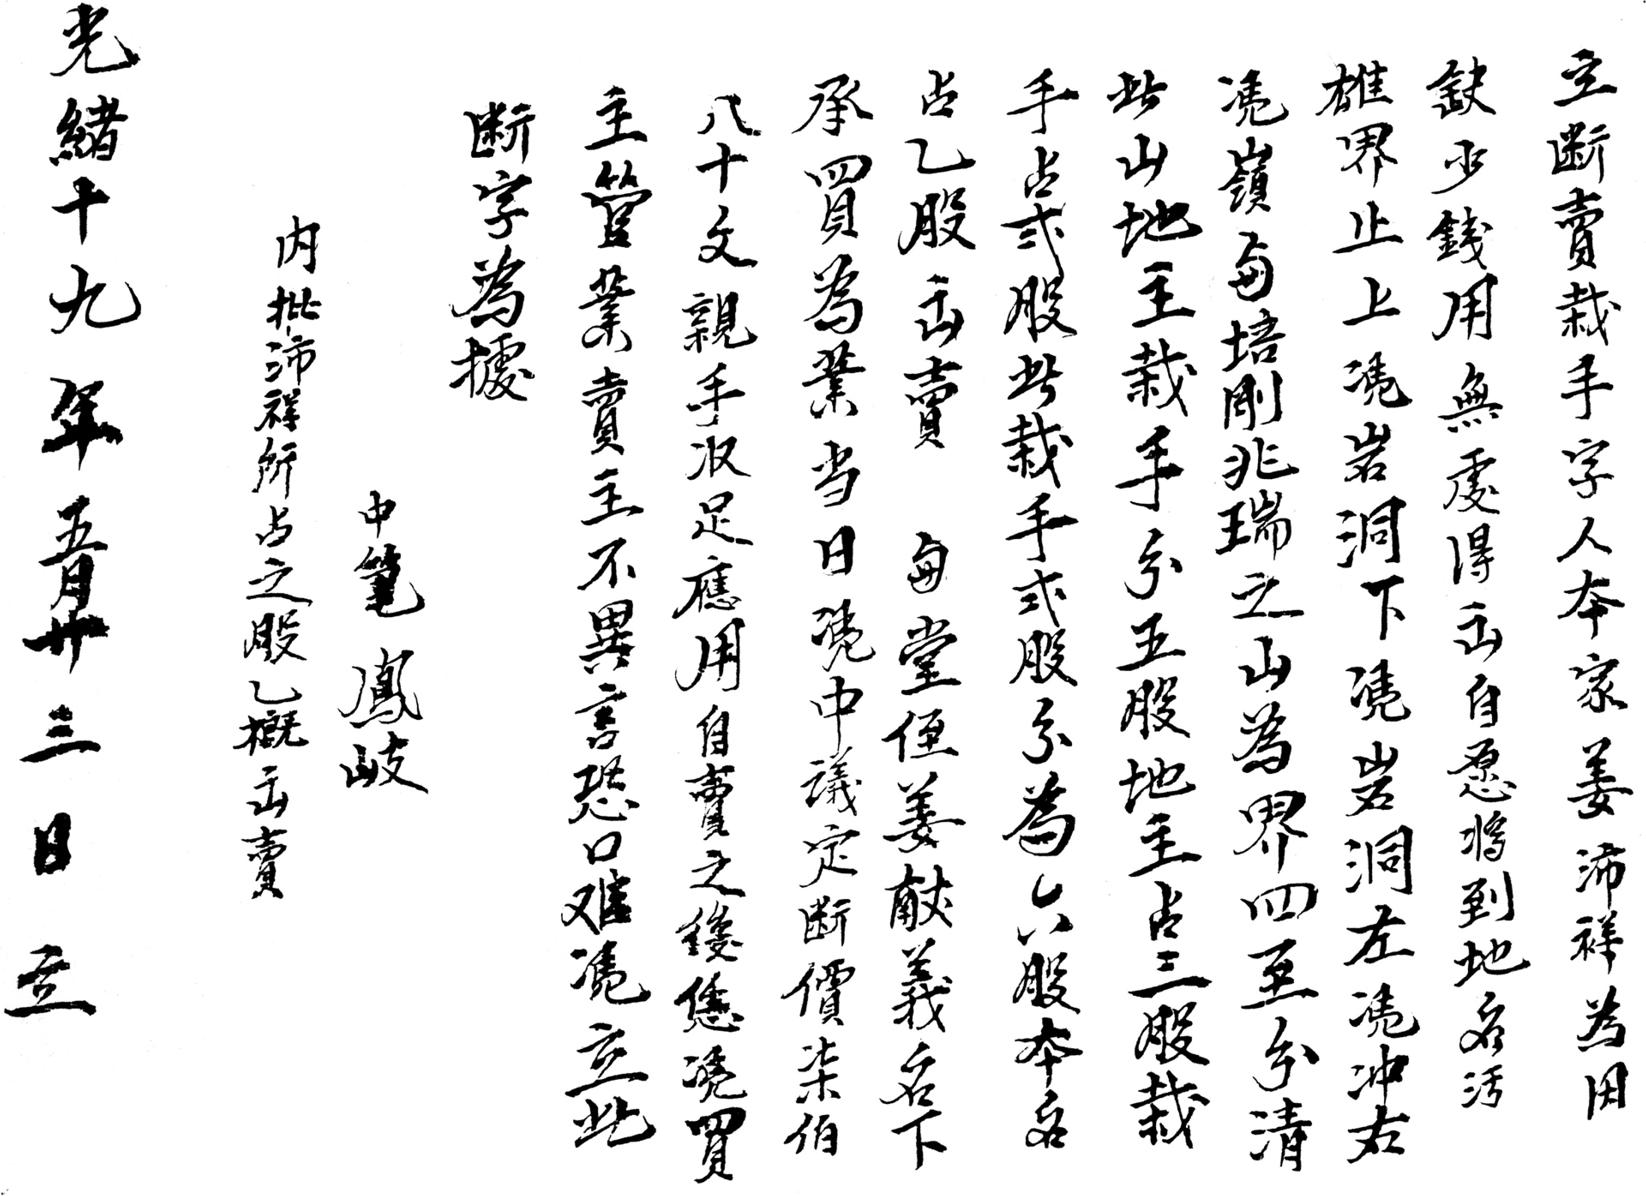 立断賣栽手字人本家姜沛祥為因
缺少錢用無處得出自愿将到地名污
雄界止上凴岩洞下凴岩洞左凴冲右
凴嶺与培剛兆瑞之山為界四至分清
此山地主栽手分五股地主占三股栽
手占弍股此栽手弍股分為六股本名
占乙股出賣 与堂侄姜献義名下
承買為業当日凴中議定断價柒伯
八十文親手收足應用自賣之後恁凴買
主管業賣主不異言恐口难凴立此
断字為據
中筆 鳳岐
内批沛祥所占之股乙概出賣
光緒十九年五月廿三日立